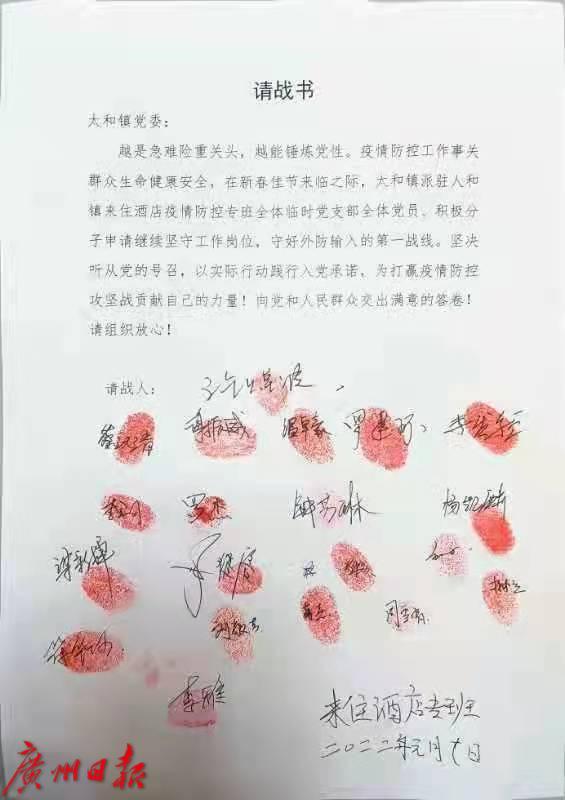 请战书
太和镇党委:
越是急难险重关头,越能锤炼党性。疫情防控工作事关
群众生命健康安全,在新春佳节来临之际,太和镇派驻人和
镇来住酒店疫情防控专班全体临时党支部全体党员、积极分
子申请继续坚守工作岗位,守好外防输入的第一战线。坚决
听从党的号召,以实际行动践行入党承诺,为打赢疫情防控
攻坚战贡献自己的力量!向党和人民群众交出满意的答卷!
请组织放心!
请战人:
罗杰 钟芳琳
李雅
来住酒店专班
二〇二二年元月十日
廣州日報